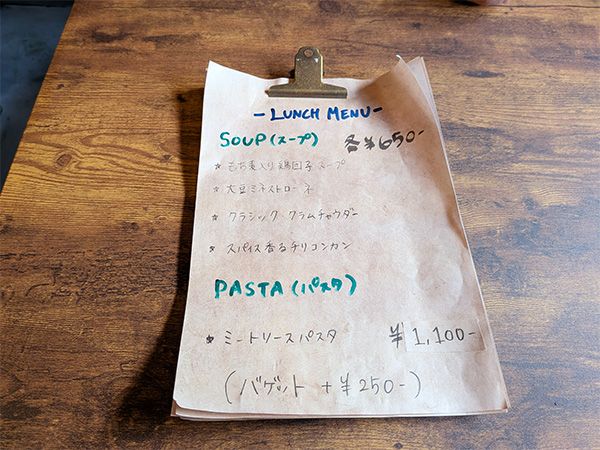 - LUNCH MENU -
SOUP (スープ) 各¥650-
* もち麦入り鶏団子スープ
* 大豆ミネストローネ
* クラシック クラムチャウダー
* スパイス香るチリコンカン
PASTA (パスタ)
* ミートリースパスタ ¥1,100-
(バゲット +¥250-)